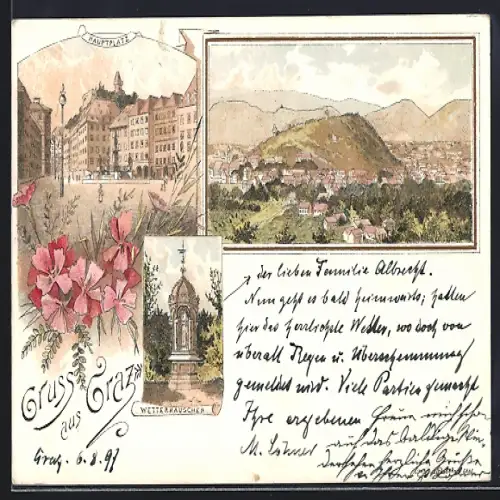 HAUPTPLATZ
WETTERHÄUSCHEN
Gruss aus Graz
der lieben Familie Albrecht.
Nun geht es bald heimwärts; hatten
hier das herrlichste Wetter, wo doch von
überall Regen u. Überschwemmung
gemeldet wird. Viele Partien gemacht
Ihre ergebenen
M.
auf das
herzliche Grüße
Graz, 6.8.97